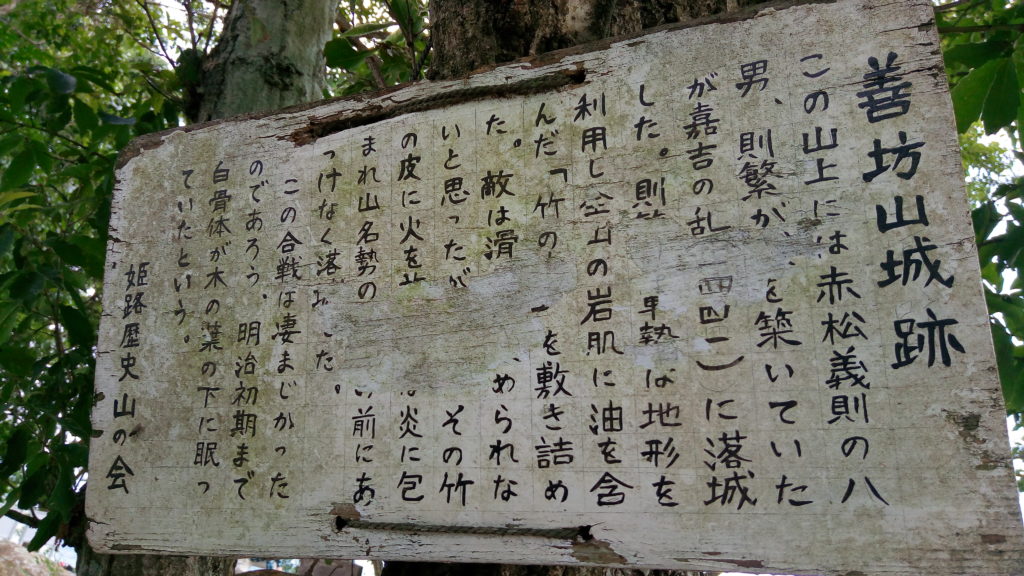 善坊山城跡
この山上には赤松義則の八
男、則繁が、を築いていた
が嘉吉の乱(一四四一)に落城
した。則 軍勢は地形を
利用し全山の岩肌に油を含
んだ「竹の を敷き詰め
た。敵は滑 められな
いと思ったが その竹
の皮に火を 炎に包
まれ山名勢の 前にあ
っけなく落 した。
この合戦は凄まじかった
のであろう、明治初期まで
白骨体が木の葉の下に眠っ
ていたという。
姫路歴史山の会